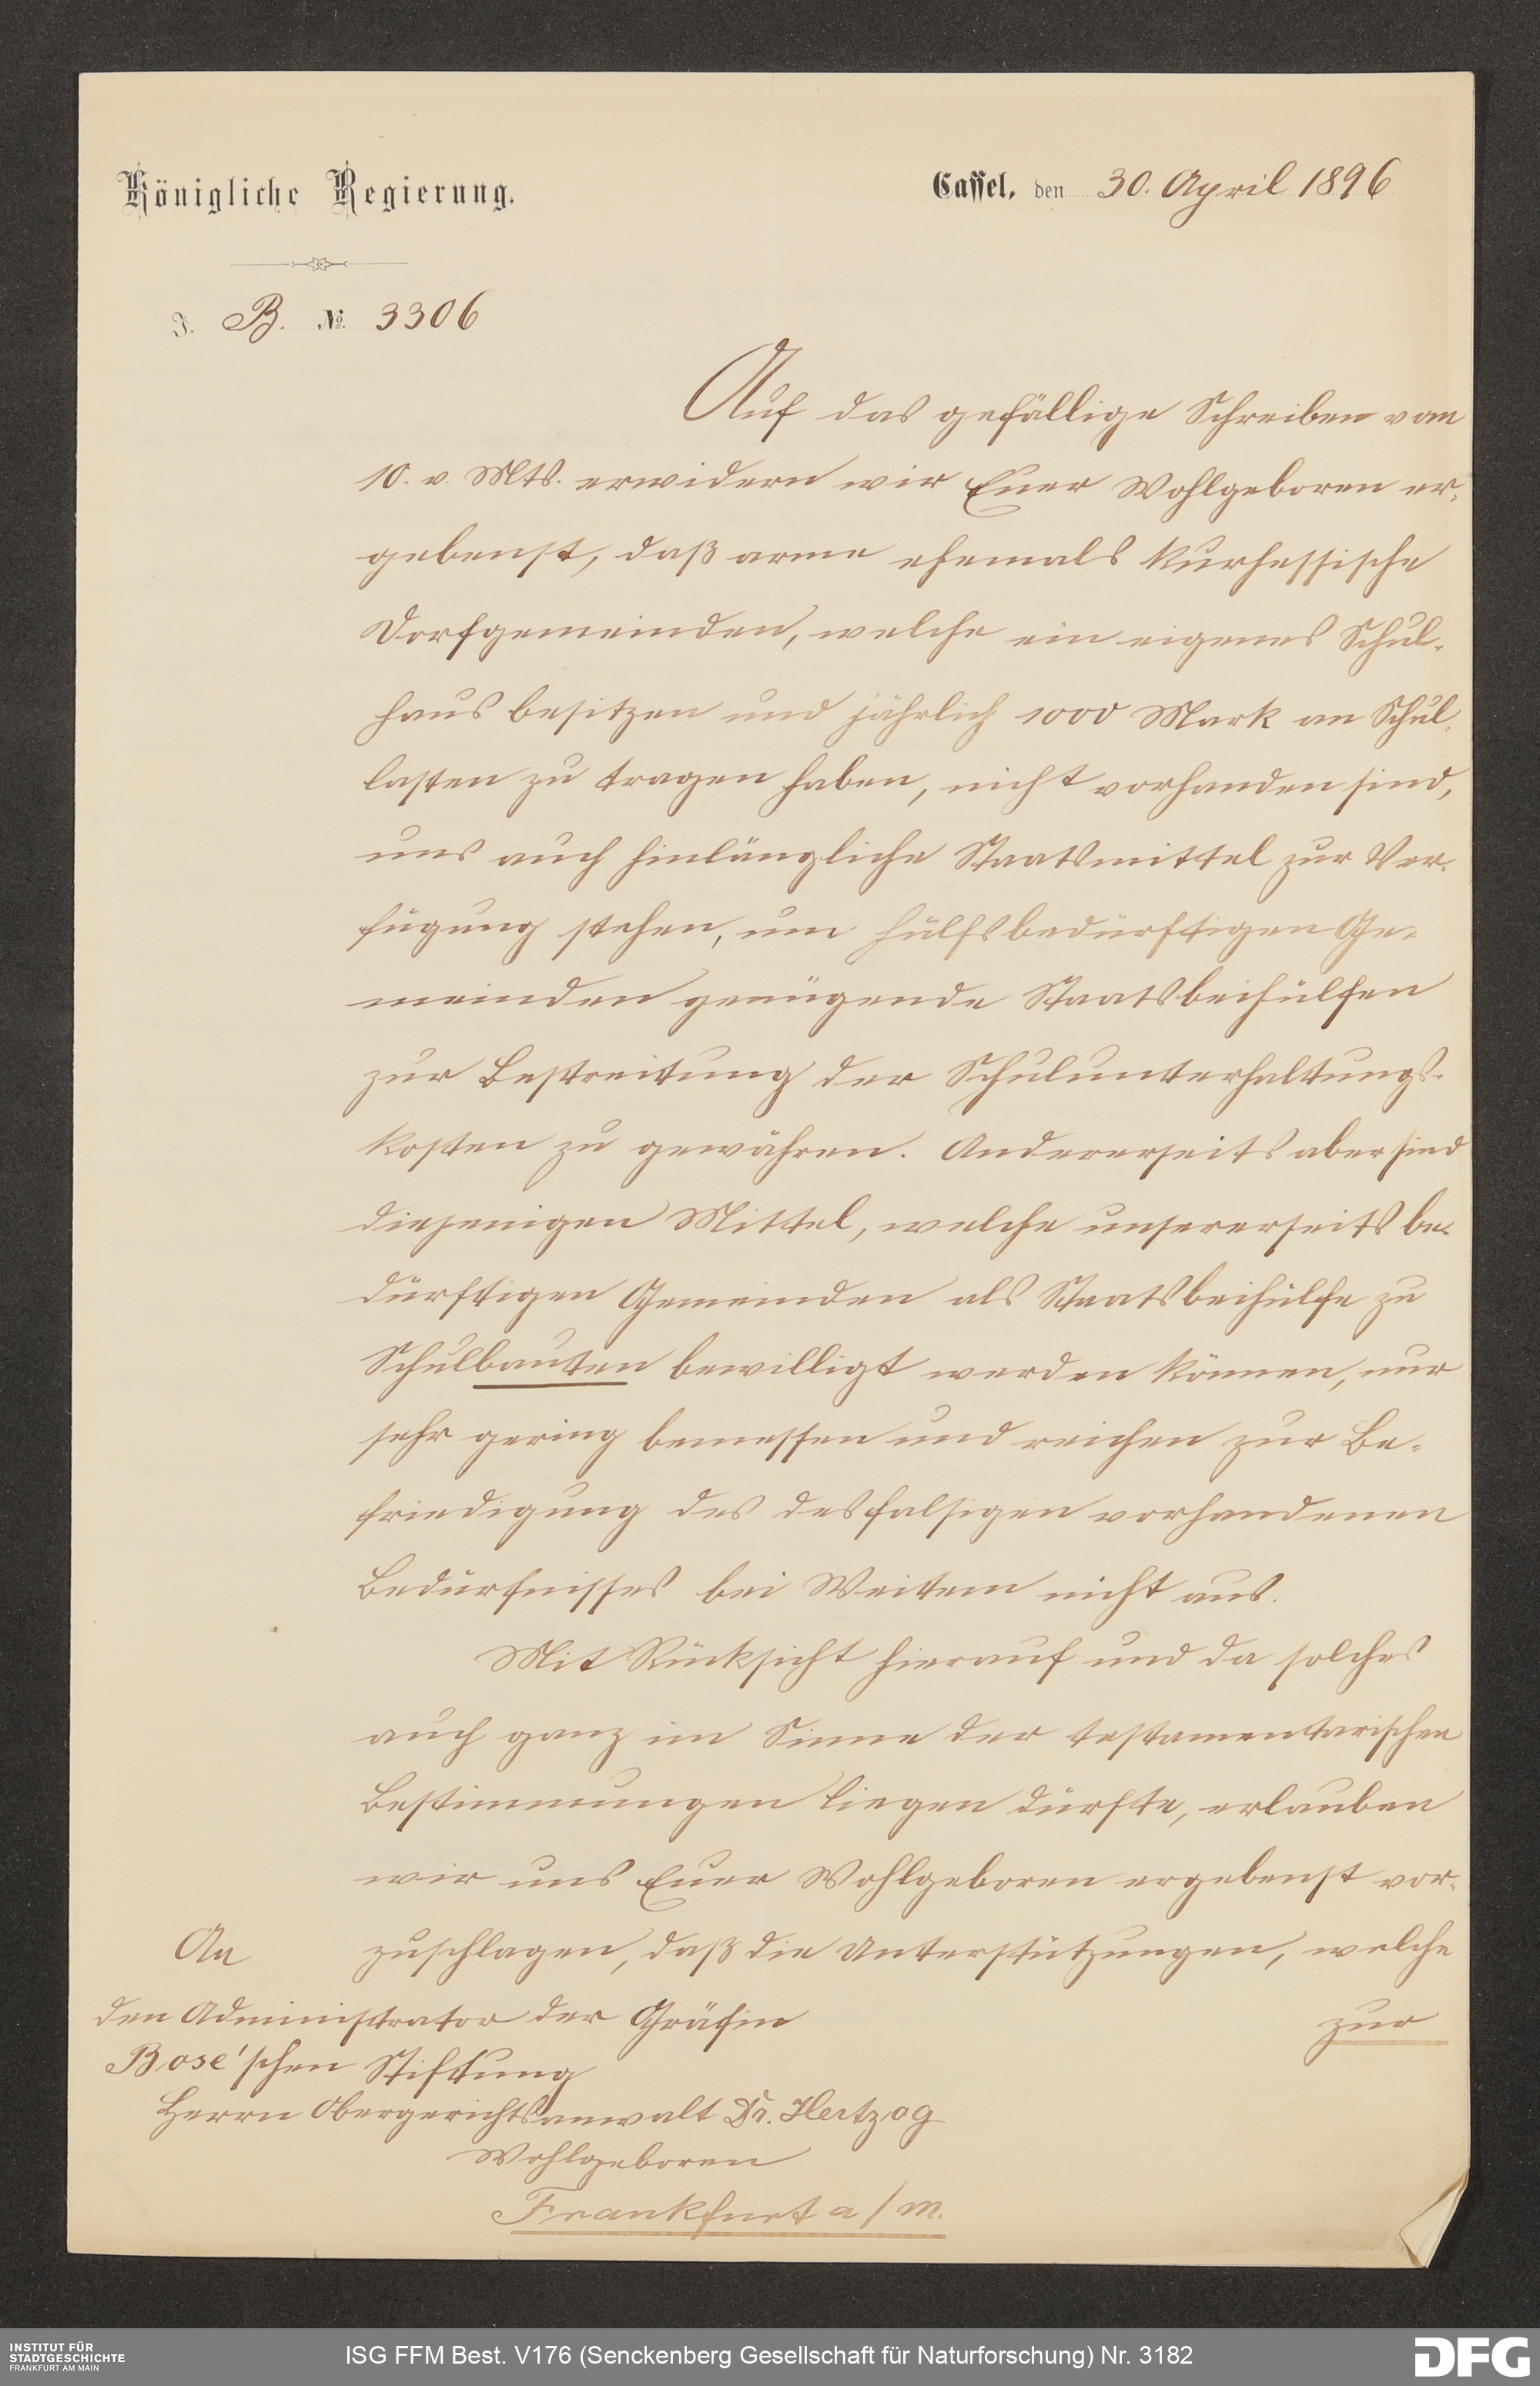 Königliche Regierung.
Cassel, den 30. April 1896
J. B. № 3306
Auf das gefällige Schreiben vom
10. v. Mts. erwidern wir Euer Wohlgeboren er-
gebenst, daß arme ehemals kurhessische
Dorfgemeinden, welche ein eigenes Schul-
haus besitzen und jährlich 1000 Mark an Schul-
lasten zu tragen haben, nicht vorhanden sind,
uns auch hinlängliche Staatsmittel zur Ver-
fügung stehen, um hülfsbedürftigen Ge-
meinden genügende Staatsbeihülfen
zur Bestreitung der Schulunterhaltungs-
kosten zu gewähren. Andererseits aber sind
diejenigen Mittel, welche unsererseits be-
dürftigen Gemeinden als Staatsbeihülfe zu
Schulbauten bewilligt werden können, nur
sehr gering bemessen und reichen zur Be-
friedigung des desfalsigen vorhandenen
Bedürfnisses bei Weitem nicht aus.
Mit Rücksicht hierauf und da solches
auch ganz im Sinne der testamentarischen
Bestimmungen liegen dürfte, erlauben
wir uns Euer Wohlgeboren ergebenst vor-
zuschlagen, daß die Unterstützungen, welche
zur
An
den Administrator der Gräfin
Bose'schen Stiftung
Herrn Obergerichtsanwalt Dr. Hertzog
Wohlgeboren
Frankfurt a/M.
INSTITUT FÜR
STADTGESCHICHTE
FRANKFURT AM MAIN
ISG FFM Best. V176 (Senckenberg Gesellschaft für Naturforschung) Nr. 3182
DFG